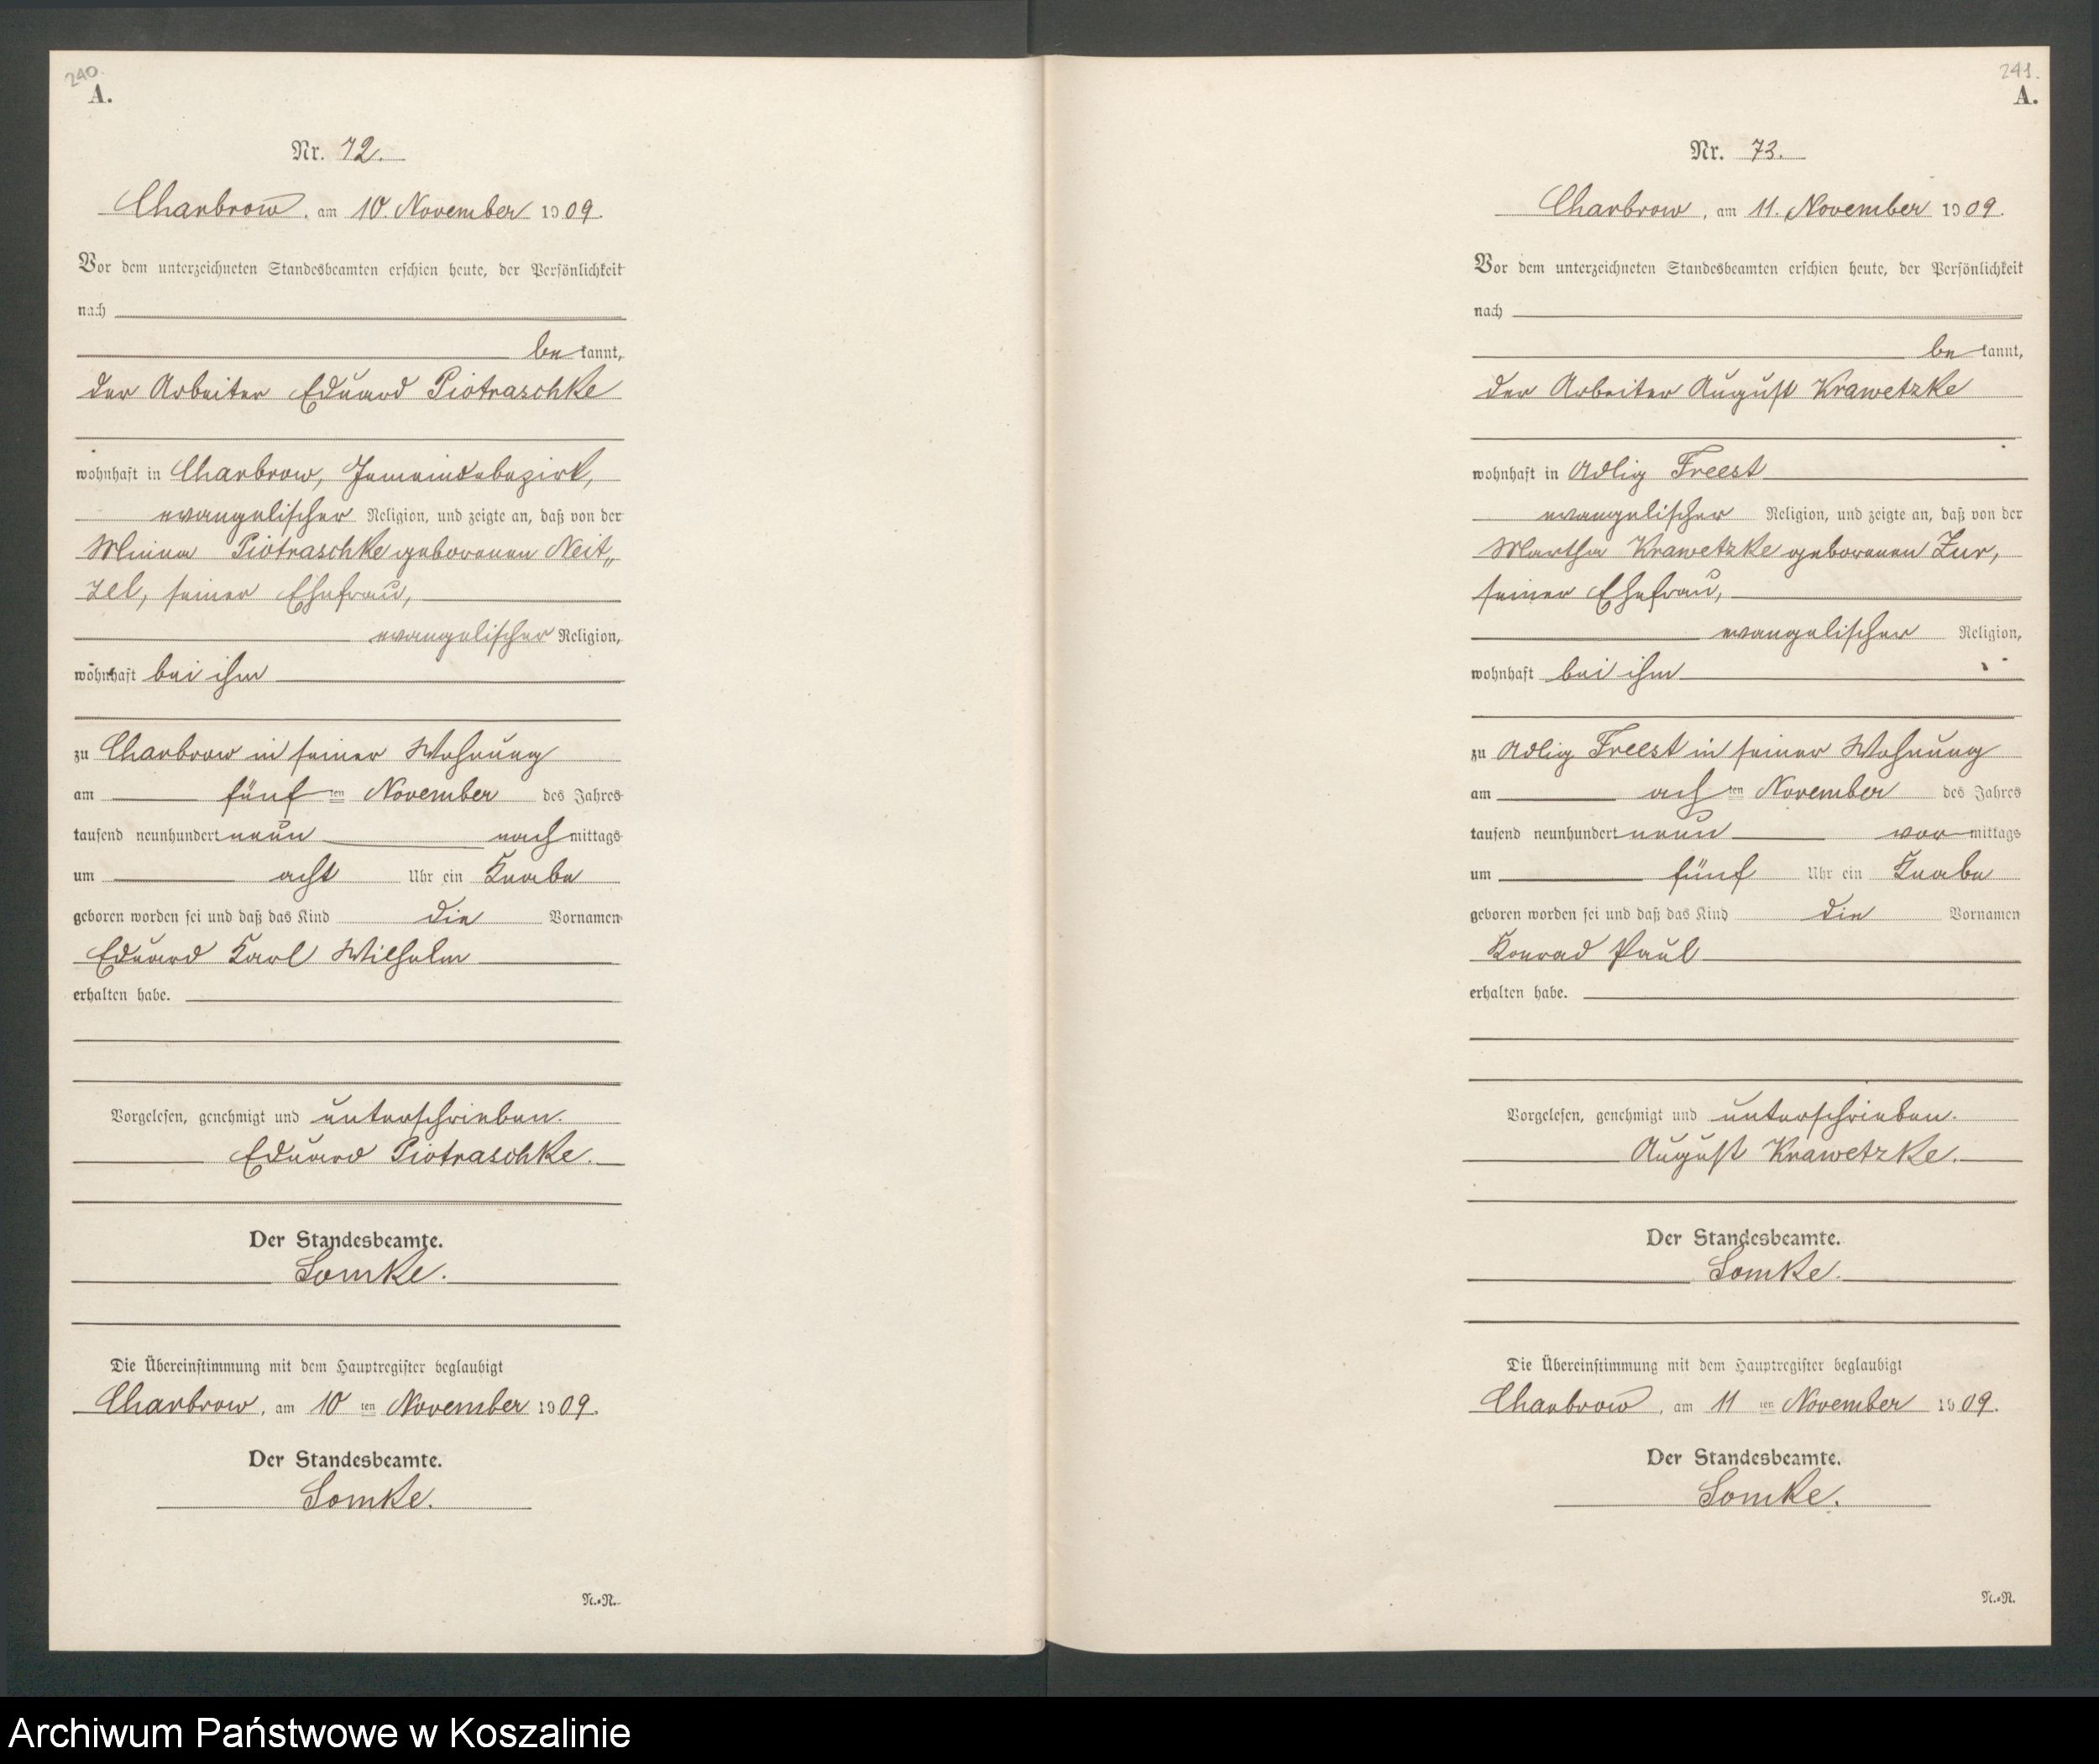 240.
A.
Nr. 72.
Charbrow, am 10. November 1909.
Vor dem unterzeichneten Standesbeamten erschien heute, der Persönlichkeit
nach
be kannt,
der Arbeiter Eduard Piotraschke
wohnhaft in Charbrow, Gemeindebezirk,
evangelischer Religion, und zeigte an, daß von der
Minna Piotraschke geborenen Neit„
zel, seiner Ehefrau,
evangelischer Religion,
wohnhaft bei ihm
zu Charbrow in seiner Wohnung
am fünften November des Jahres
tausend neunhundert neun nach mittags
um acht Uhr ein Knabe
geboren worden sei und daß das Kind die Vornamen
Eduard Karl Wilhelm
erhalten habe.
Vorgelesen, genehmigt und unterschrieben.
Eduard Piotraschke.
Der Standesbeamte.
Lomke.
Die Übereinstimmung mit dem Hauptregister beglaubigt
Charbrow, am 10 ten November 1909.
Der Standesbeamte.
Lomke.
N.-R.
241.
A.
Nr. 73.
Charbrow, am 11. November 1909.
Vor dem unterzeichneten Standesbeamten erschien heute, der Persönlichkeit
nach
be kannt,
der Arbeiter August Krawetzke
wohnhaft in Adlig Freest
evangelischer Religion, und zeigte an, daß von der
Martha Krawetzke geborenen Zur,
seiner Ehefrau,
evangelischer Religion,
wohnhaft bei ihm
zu Adlig Freest in seiner Wohnung
am achten November des Jahres
tausend neunhundert neun vor mittags
um fünf Uhr ein Knabe
geboren worden sei und daß das Kind die Vornamen
Konrad Paul
erhalten habe.
Vorgelesen, genehmigt und unterschrieben.
August Krawetzke.
Der Standesbeamte.
Lomke.
Die Übereinstimmung mit dem Hauptregister beglaubigt
Charbrow, am 11 ten November 1909.
Der Standesbeamte.
Lomke.
N.-R.
Archiwum Państwowe w Koszalinie